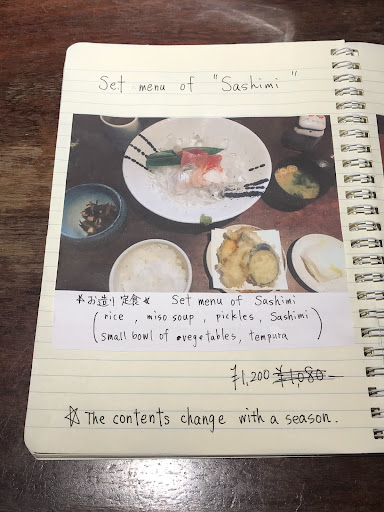 Set menu of "Sashimi"
☆お造り定食☆ Set menu of Sashimi
(rice, miso soup, pickles, Sashimi
small bowl of vegetables, tempura)
¥1,200 ¥1,080
☆ The contents change with a season.